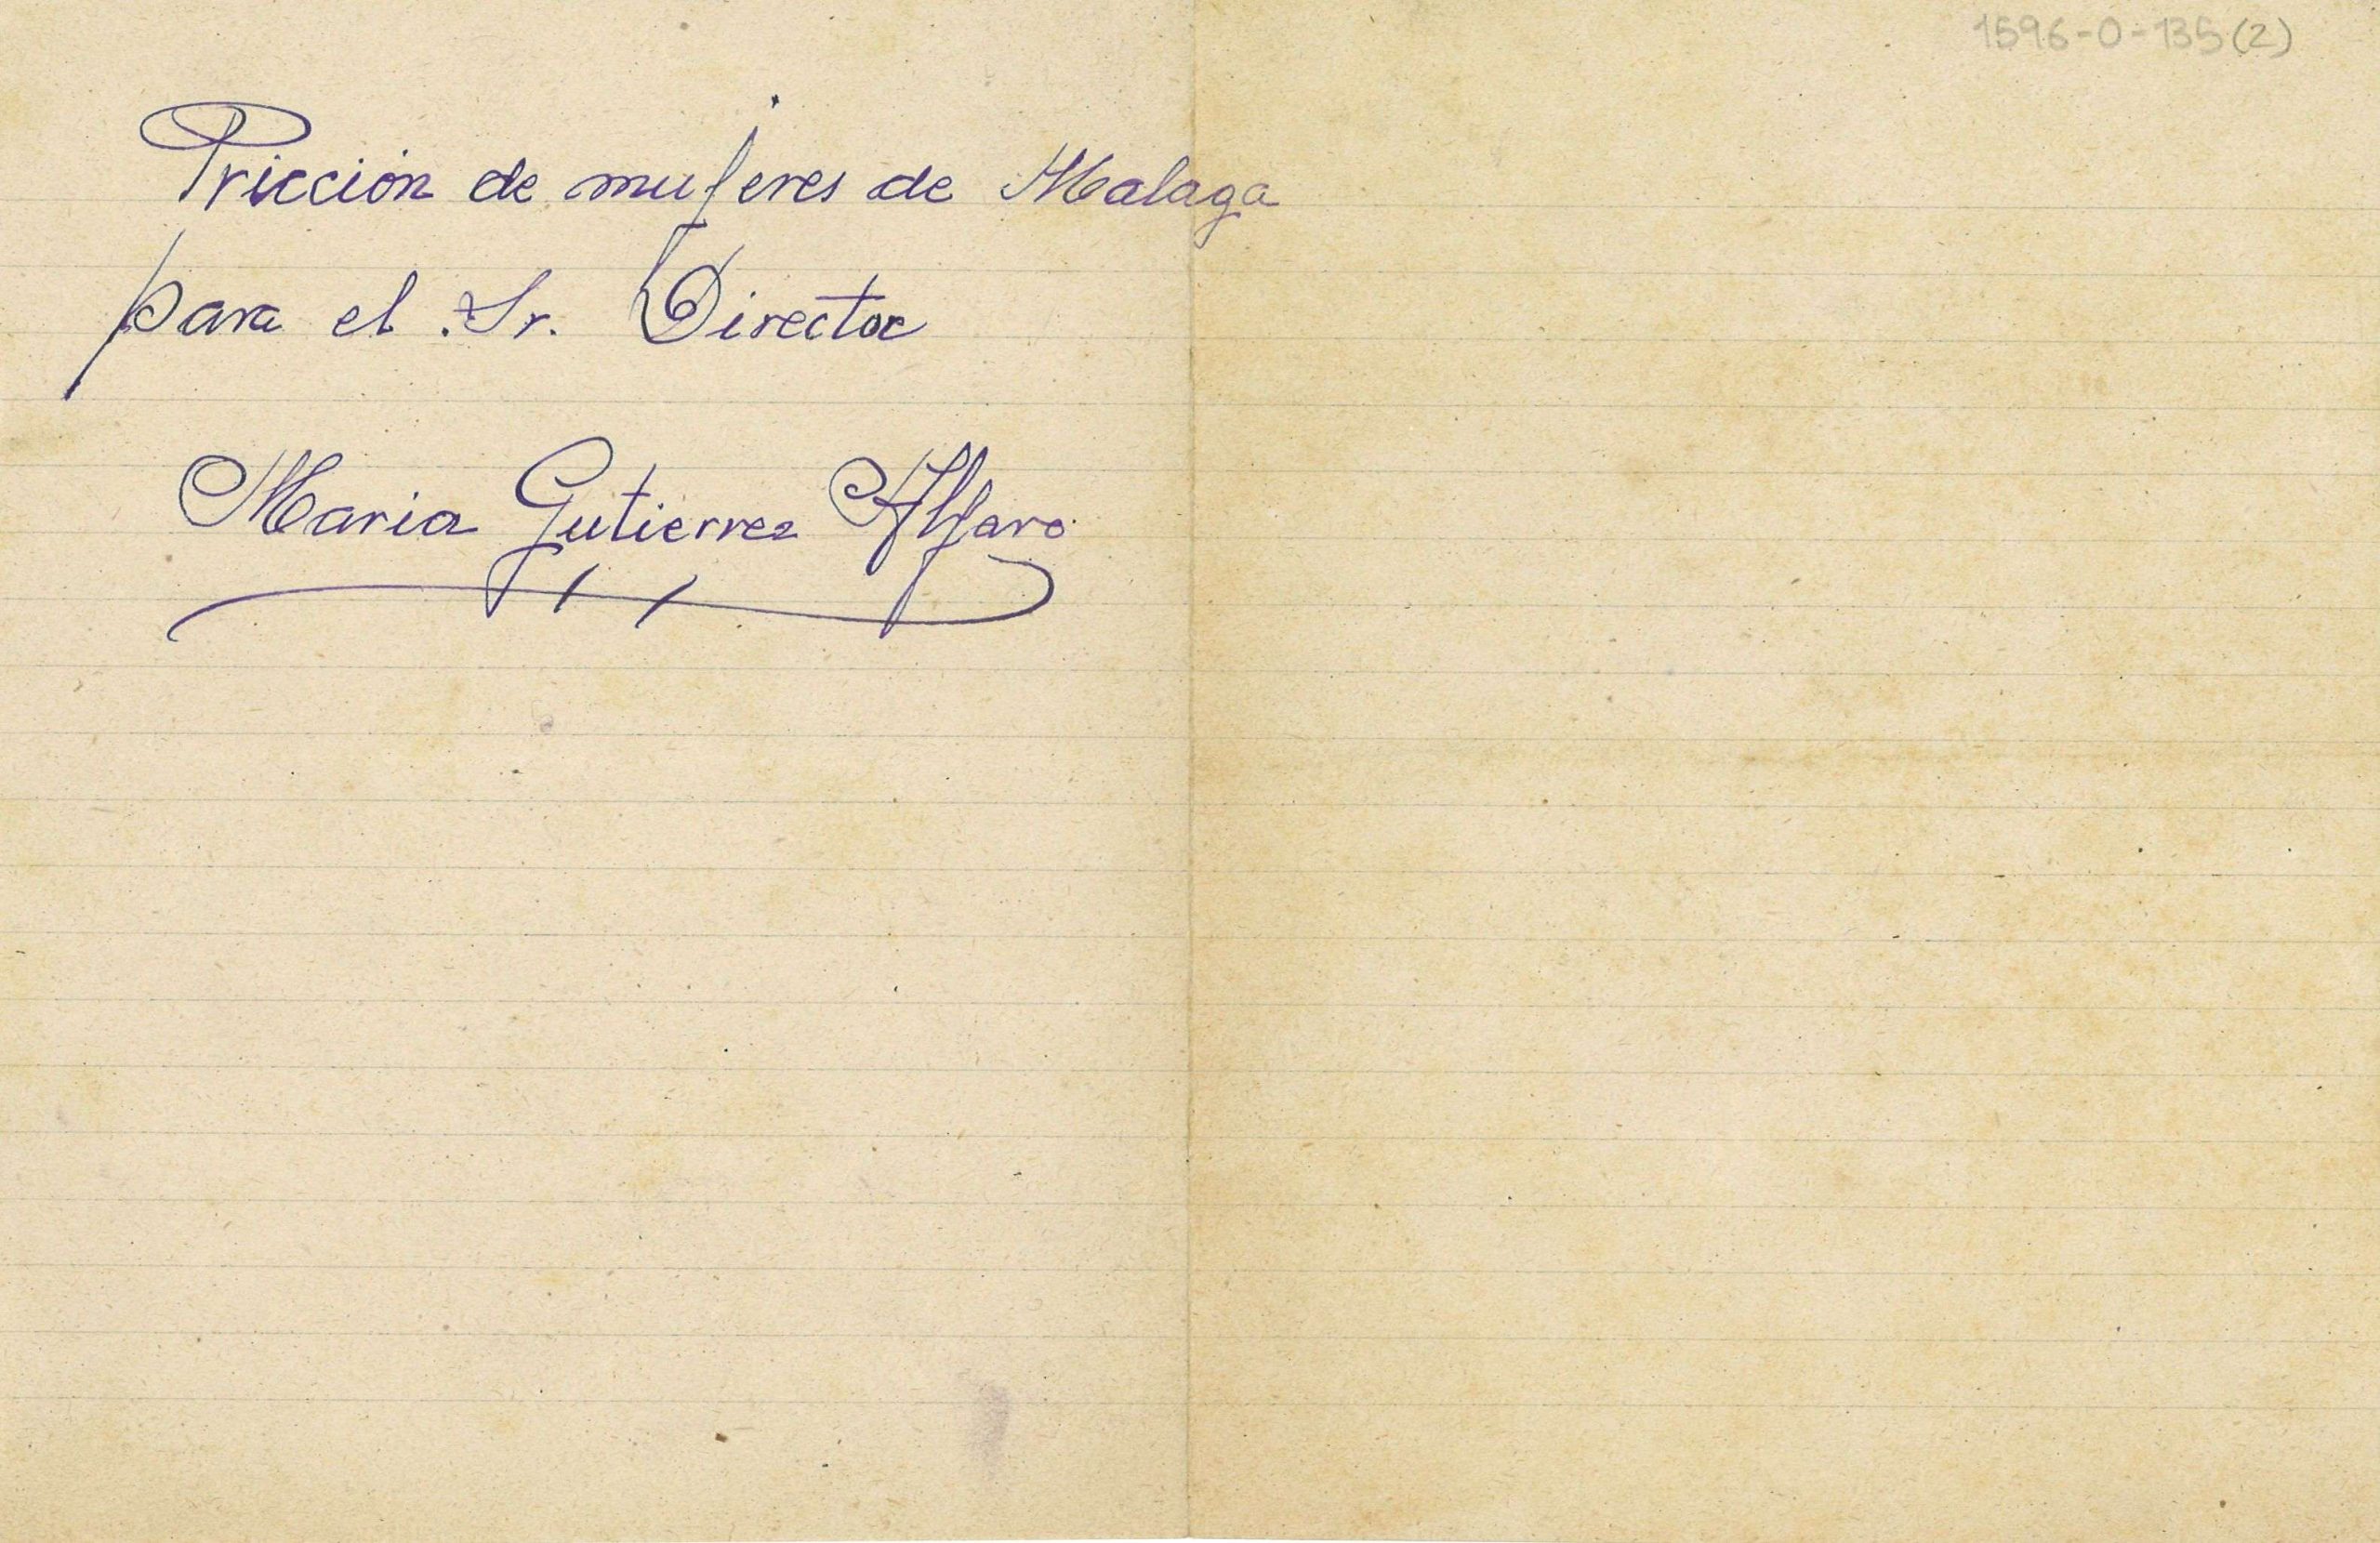 1596-0-135(2)
Pricción de mujeres de Malaga
para el Sr. Director
Maria Gutierrez Alfaro